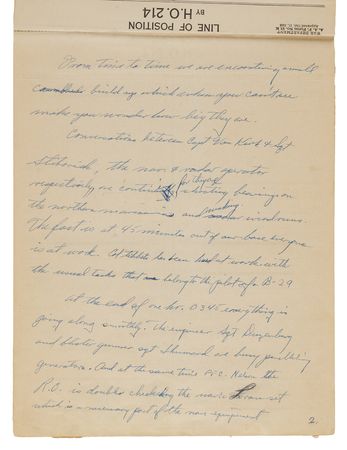 LINE OF POSITION
BY H.O. 214
WAR DEPARTMENT
From time to time we are encountering small
build up which when you cant see
make you wonder how big they are.
Conversations between Capt Van Kirk & Sgt
Stiborik, the nav. & radar operator
respectively are
shooting bearings on
the northern marianas and
The fact is at 45 minutes out of our base everyone
is at work. Col Tibbets has been hard at work with
the usual tasks that belong to the pilot of a B-29
at the end of one hr. 0345 everything is
going along smoothly. The engineer Sgt Duzenbury
and blister gunner sgt Shumard are busy
generators. And at the same time Pfc. Nelson the
R.O. is double checking the nav's Loran set
which is a necessary part of the nav equipment
2.